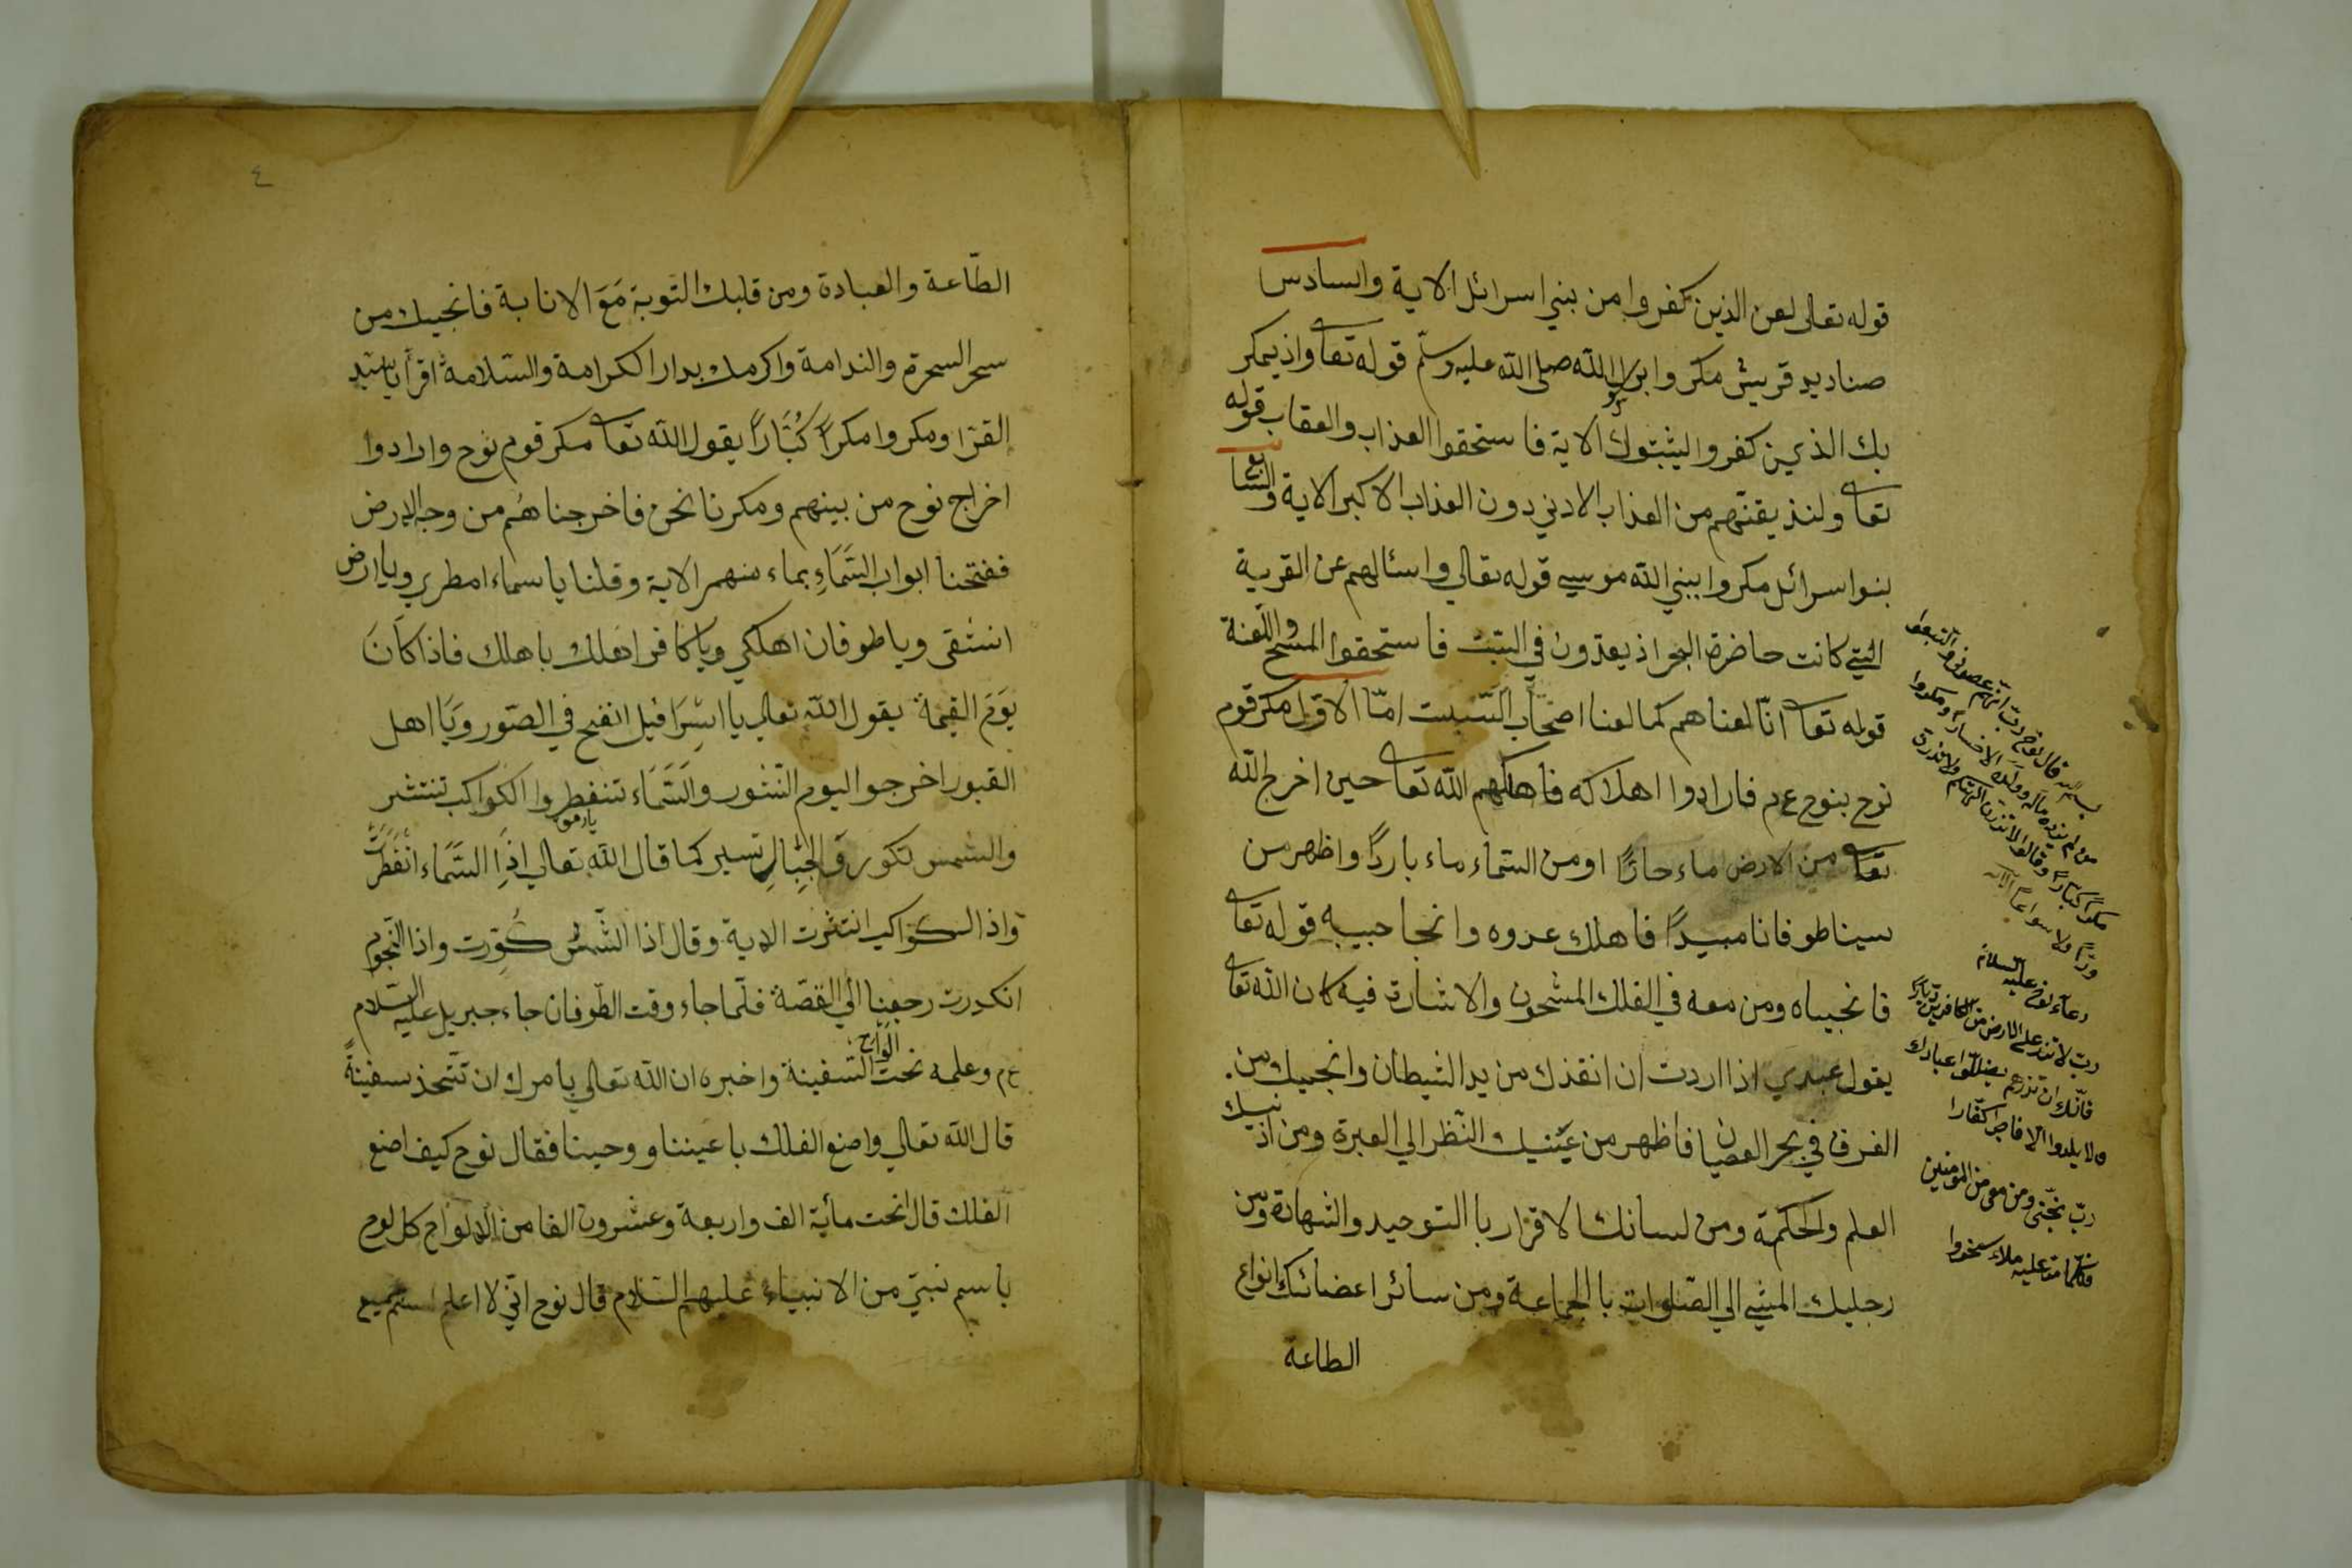 قوله تعالى لعن الذين كفروا من بني اسرائل الاية والسادس
صناديد قريش مكروا برسول الله صلى الله عليه وسلم قوله تعا واذ يمكر
بك الذين كفروا ليثبتوك الاية فاستحقوا العذاب والعقاب قوله
تعا ولنذيقنهم من العذاب الادني دون العذاب الاكبر الاية والسابع
بنوا اسرائل مكروا بنبي الله موسي قوله تعالي واسئالهم عن القرية
التي كانت حاضرة البحر اذ يعدون في السبت فاستحقوا المسخ واللعنة
قوله تعا انا لعناهم كما لعنا اصحاب السبت اما الاول مكر قوم
نوح بنوح ع م فارادوا اهلاكه فاهلكهم الله تعا حين اخرج الله
تعا من الارض ماء حارًا او من السماء ماء باردًا واظهر من
سينا طوفانا مبيدًا فاهلك عدوه وانجا حبيبه قوله تعا
فانجيناه ومن معه في الفلك المشحون والاشارة فيه كان الله تعا
يقول عبدي اذا اردت ان انقذك من يد الشيطان وانجيك من
الغرق في بحر العصيان فاظهر من عينيك النظر الي العبرة ومن اذنيك
العلم والحكمة ومن لسانك الاقرار با التوحيد والشهادة ومن
رجليك المشي الي الصلوات با الجماعة ومن سائر اعضائك انواع
الطاعة
قال نوح رب انهم عصوني واتبعوا
من لم يزده ماله وولده الا خسارا ومكروا
مكرا كبارا وقالوا لا تذرن الهتكم ولا تذرن
ودا ولا سواعا الاية
دعاء نوح عليه السلام
رب لا تذر علي الارض من الكافرين ديارا
فانك ان تذرهم يضلوا عبادك
ولا يلدوا الا فاجرا كفارا
رب نجني ومن معي من المومنين
فكلما مر عليه ملاء سخروا
٤
الطّاعة والعبادة ومن قلبك التوبة مَعَ الانابة فانجيك من
سحر السحرة والندامة واكرمك بدار الكرامة والسّلامة اقرأ يا سيد
القرا ومكروا مكرًا كُبَّارًا يقول الله تعا مكر قوم نوح وارادوا
اخراج نوح من بينهم ومكرنا نحن فاخرجناهم من وجه الارض
ففتحنا ابواب السَّمَاءِ بماء منهمر الاية وقلنا يا سماء امطري ويا ارض
انشقى ويا طوفان اهلكي ويا كافر اهلك باهلك فاذا كَانَ
يَوَمَ القيمة يقول الله تعالي يا اسْرَافيل انفخ في الصّور وَيَا اهل
القبور اخرجوا اليوم النشور والسَّمَاء تنفطر والكواكب تنتشر
والشمس تكور وَالجِبَالِ تسير كما قال الله تعالي اذَا السَّمَاء انْفَطَرَتْ
واذا الكواكب انتثرت الاية وقال اذا الشّمسُ كُوِّرت واذا النّجوم
انكدرت رجعنا الي القصّة فلمّا جاء وقت الطّوفان جاء جبريل عليه السّلام
ع م وعلمه نحت الواح السّفينة واخبره ان الله تعالي يامرك ان تتّحذ سفينةً
قال الله تعالي واصنع الفلك باعيننا ووحينا فقال نوح كيف اصنع
الفلك قال انحت مأية الف واربعة وعشرون الفا من الالواح كل لوح
باسم نبيّ من الانبياء عليهم السّلام قال نوح انّي لا اعلم اسم جميع